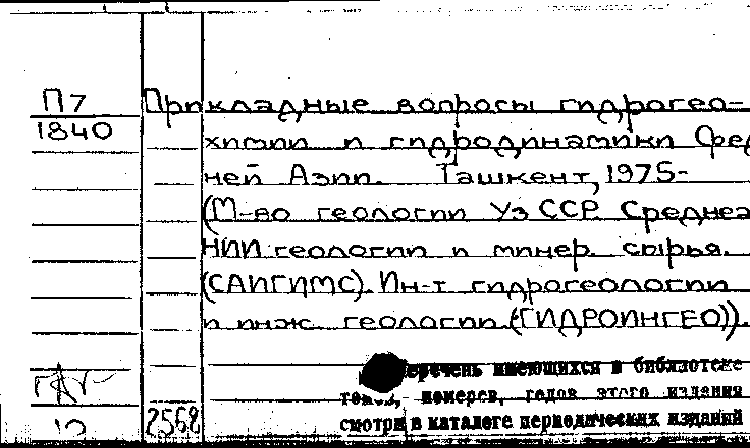 П7 Прикладные вопросы гидрогео-
1840 химии и гидродинамики Сред
ней Азии. Ташкент, 1975-
(М-во геологии УзССР. Среднеаз
НИИ геологии и минер. сырья.
(САИГИМС). Ин-т гидрогеологии
и инж. геологии (ГИДРОИНГЕО)).
Перечень имеющихся в библиотеке
томов, номеров, годов этого издания
2562 смотри в каталоге периодических изданий